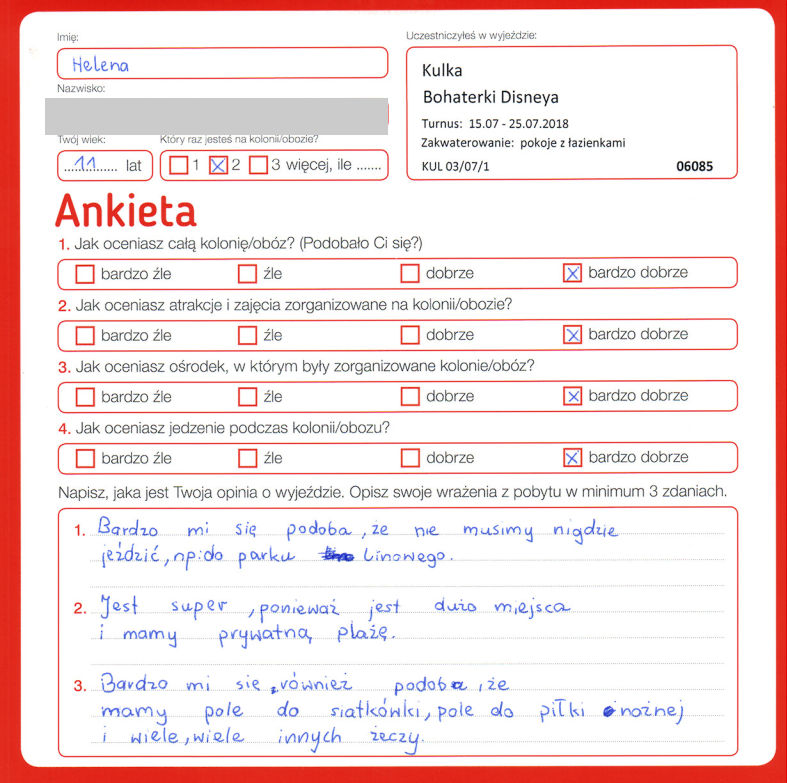 Imię:
Helena
Nazwisko:
Twój wiek:
11 lat
Który raz jesteś na kolonii/obozie?
1 2 3 więcej, ile .......
Uczestniczyłeś w wyjeździe:
Kulka
Bohaterki Disneya
Turnus: 15.07 - 25.07.2018
Zakwaterowanie: pokoje z łazienkami
KUL 03/07/1 06085
Ankieta
1. Jak oceniasz całą kolonię/obóz? (Podobało Ci się?)
bardzo źle źle dobrze bardzo dobrze
2. Jak oceniasz atrakcje i zajęcia zorganizowane na kolonii/obozie?
bardzo źle źle dobrze bardzo dobrze
3. Jak oceniasz ośrodek, w którym były zorganizowane kolonie/obóz?
bardzo źle źle dobrze bardzo dobrze
4. Jak oceniasz jedzenie podczas kolonii/obozu?
bardzo źle źle dobrze bardzo dobrze
Napisz, jaka jest Twoja opinia o wyjeździe. Opisz swoje wrażenia z pobytu w minimum 3 zdaniach.
1. Bardzo mi się podoba, że nie musimy nigdzie
jeździć, np: do parku Linowego.
2. Jest super, ponieważ jest dużo miejsca
i mamy prywatną plażę.
3. Bardzo mi się również podoba, że
mamy pole do siatkówki, pole do piłki nożnej
i wiele, wiele innych rzeczy.